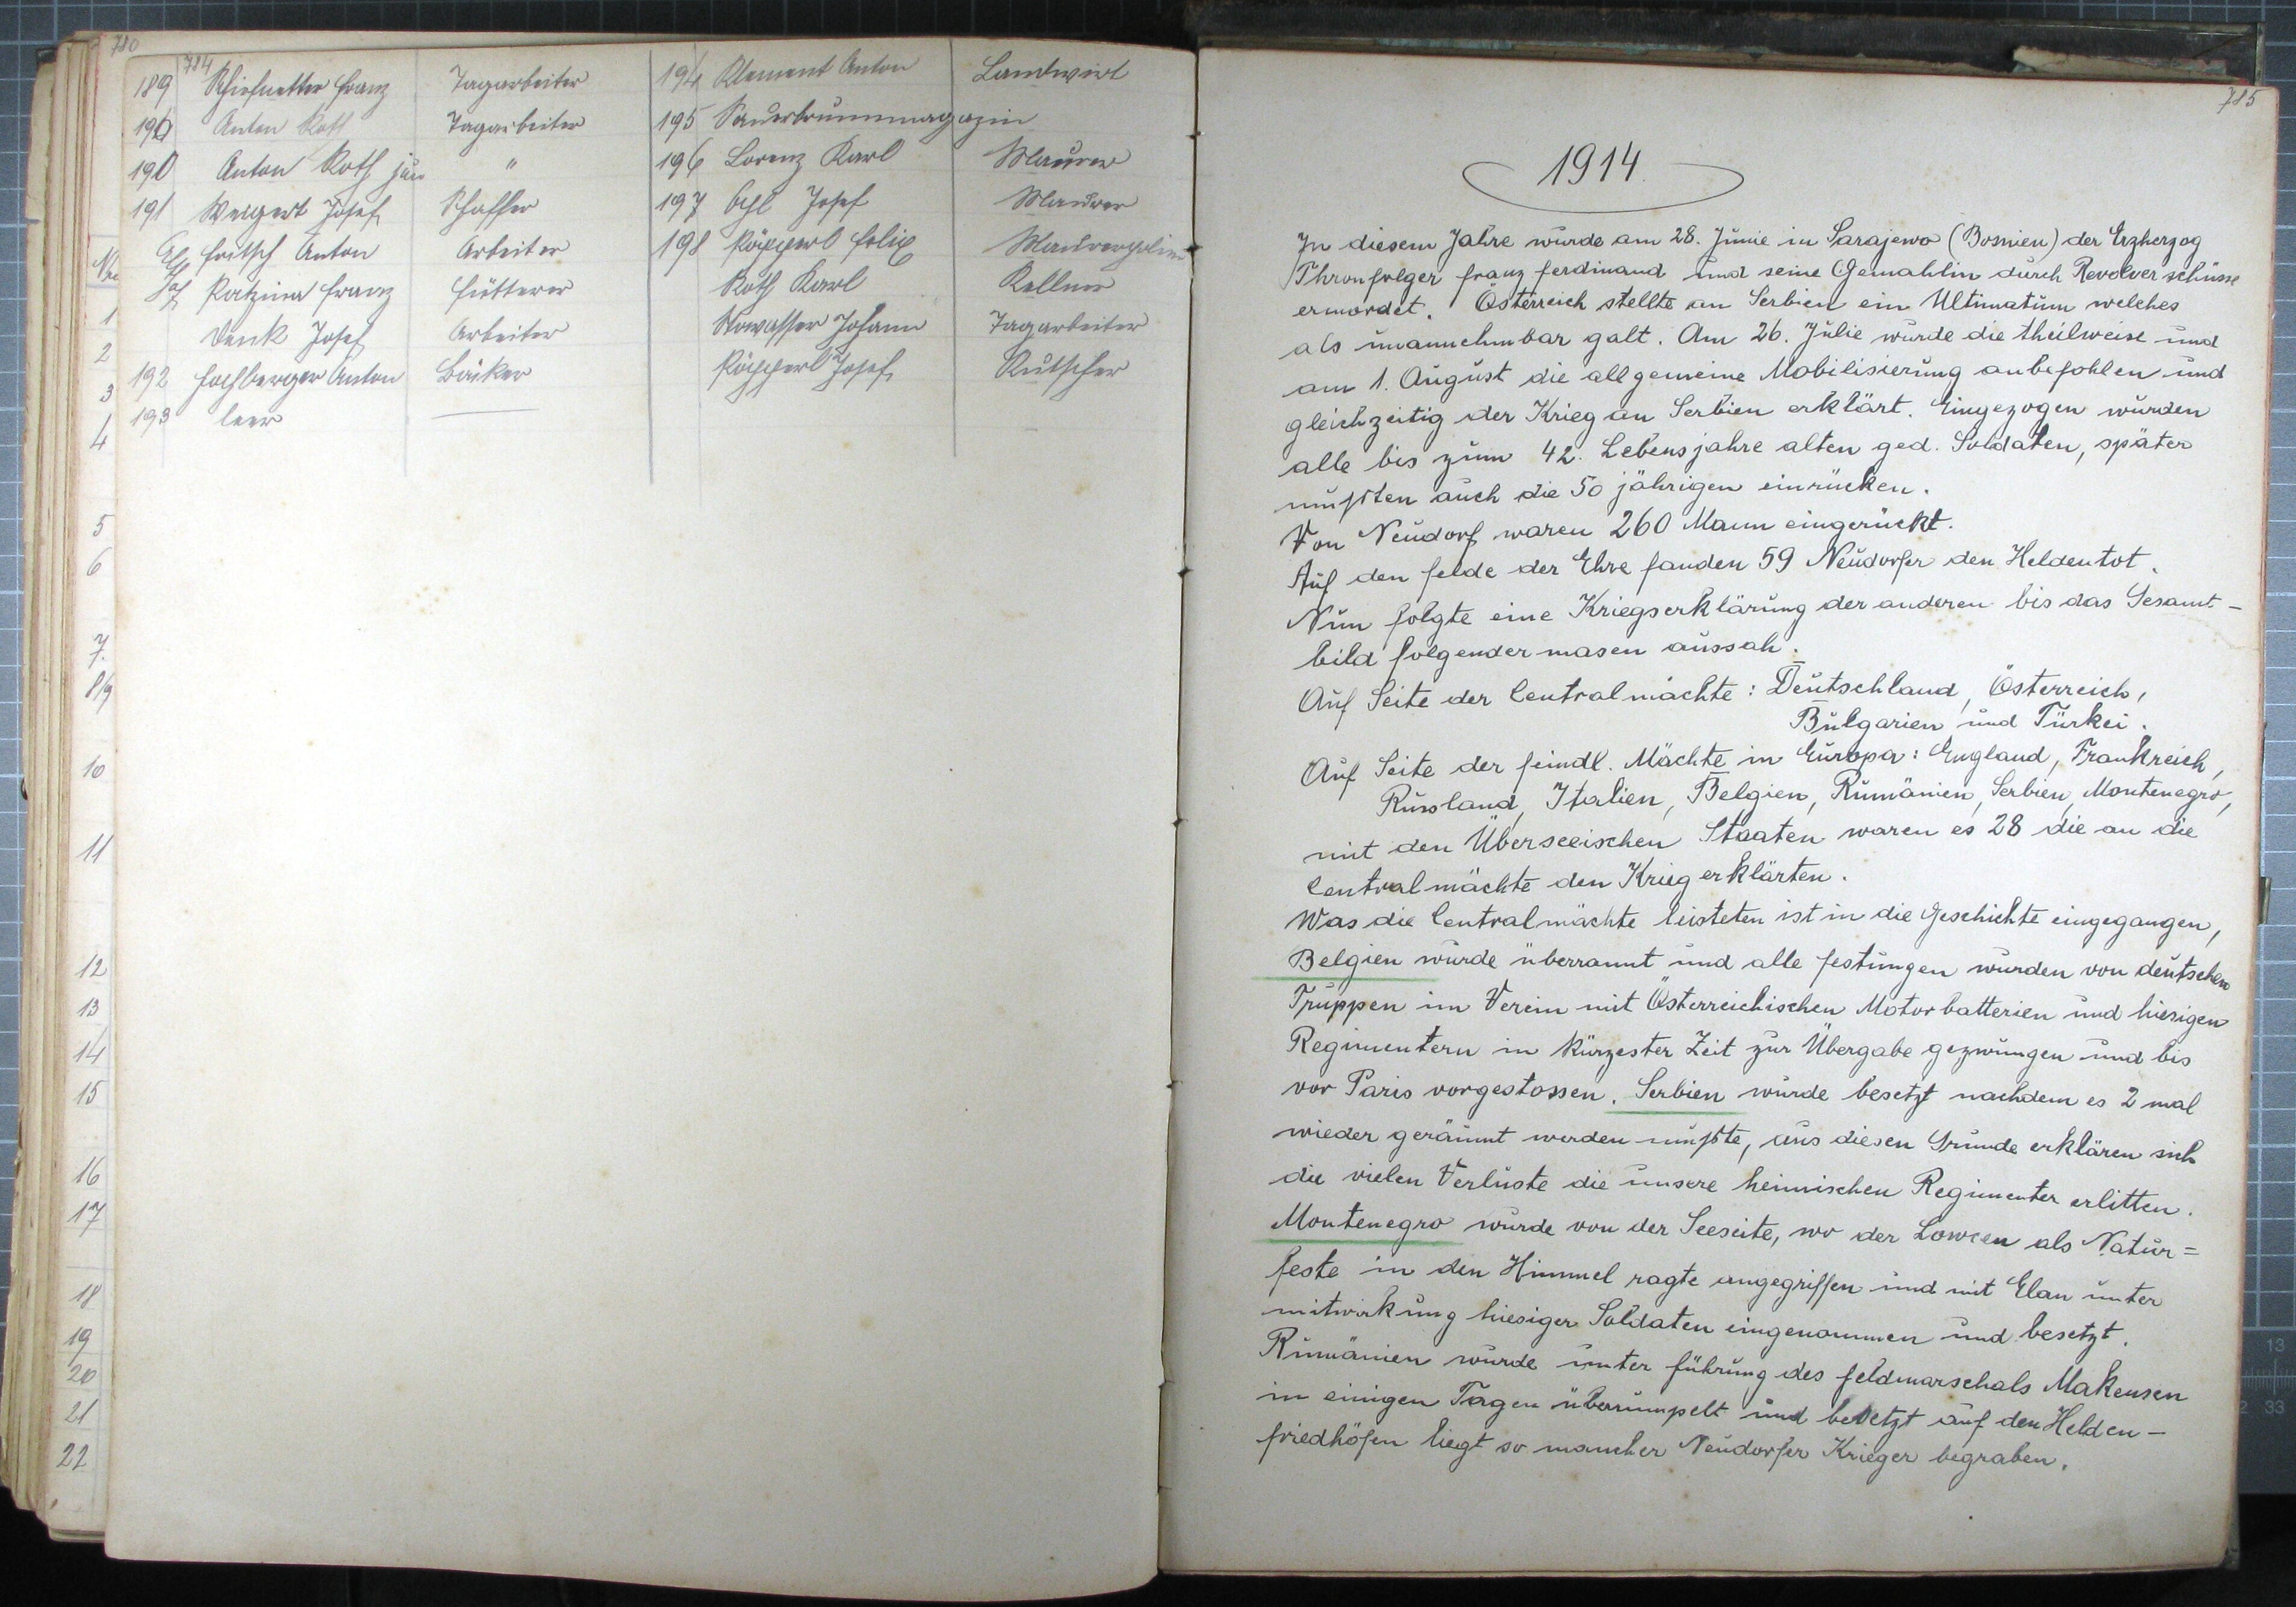 780
784
189 Schiefnetter Franz Tagarbeiter 194 Klement Anton Landwirt
190 Anton Roth Tagarbeiter 195 Sauerbrunnmagazin
190 Anton Roth jun " 196 Lorenz Karl Maurer
191 Weigert Josef Schaffer 197 Josef Maurer
Fritsch Anton Arbeiter 198 Köpperl Felix
Katzina Franz Fütterer Roth Karl Kellner
Denk Josef Arbeiter Nowasser Johann Tagarbeiter
192 Hochberger Anton Bäcker Köpperl Josef Kutscher
193 leer —
1
2
3
4
5
6
7.
8/9
10
11
12
13
14
15
16
17
18
19
20
21
22
785
1914.
In diesem Jahre wurde am 28. Junie in Sarajewo (Bosnien) der Erzherzog
Thronfolger Franz Ferdinand und seine Gemahlin durch Revolverschüsse
ermordet. Österreich stellte an Serbien ein Ultimatum welches
als unannehmbar galt. Am 26. Julie wurde die theilweise und
am 1. August die allgemeine Mobilisierung anbefohlen und
gleichzeitig der Krieg an Serbien erklärt. Eingezogen wurden
alle bis zum 42. Lebensjahre alten ged. Soldaten, später
mußten auch die 50 jährigen einrücken.
Von Neudorf waren 260 Mann eingerückt.
Auf den Felde der Ehre fanden 59 Neudorfer den Heldentot.
Nun folgte eine Kriegserklärung der anderen bis das Gesamt-
bild folgendermasen aussah.
Auf Seite der Centralmächte: Deutschland, Österreich,
Bulgarien und Türkei.
Auf Seite der feindl. Mächte in Europa: England, Frankreich,
Russland, Italien, Belgien, Rumänien, Serbien, Montenegro,
mit den Überseeischen Staaten waren es 28 die an die
Centralmächte den Krieg erklärten.
Was die Centralmächte leisteten ist in die Geschichte eingegangen,
Belgien wurde überrannt und alle Festungen wurden von deutschen
Truppen im Verein mit Österreichischen Motorbatterien und hiesigen
Regimentern in kürzester Zeit zur Übergabe gezwungen und bis
vor Paris vorgestossen. Serbien wurde besetzt nachdem es 2 mal
wieder geräumt werden mußte, aus diesen Grunde erklären sich
die vielen Verluste die unsere heimischen Regimenter erlitten.
Montenegro wurde von der Seeseite, wo der Lowcen als Natur=
feste in den Himmel ragte angegriffen und mit Elan unter
mitwirkung hiesiger Soldaten eingenommen und besetzt.
Rumänien wurde unter führung des Feldmarschals Makensen
in einigen Tagen überrumpelt und besetzt auf den Helden-
friedhöfen liegt so mancher Neudorfer Krieger begraben.
13
33